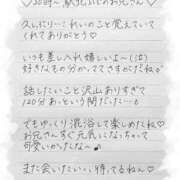 ♡20時〜 駅北ぶどのお兄さん♡
久しぶりにこれいのこと覚えていて
くれてありがとう♡
いつも差し入れ嬉しいよ〜(泣)
好きなもの分かっててさすがだね♡
話したいこと沢山ありすぎて
120分あっという間だった…💧
でもゆっくり混浴して楽しめたね♡
お兄さんすぐ元気になっちゃって
可愛いかったな〜♪
また会いたいい、待ってるねん♡